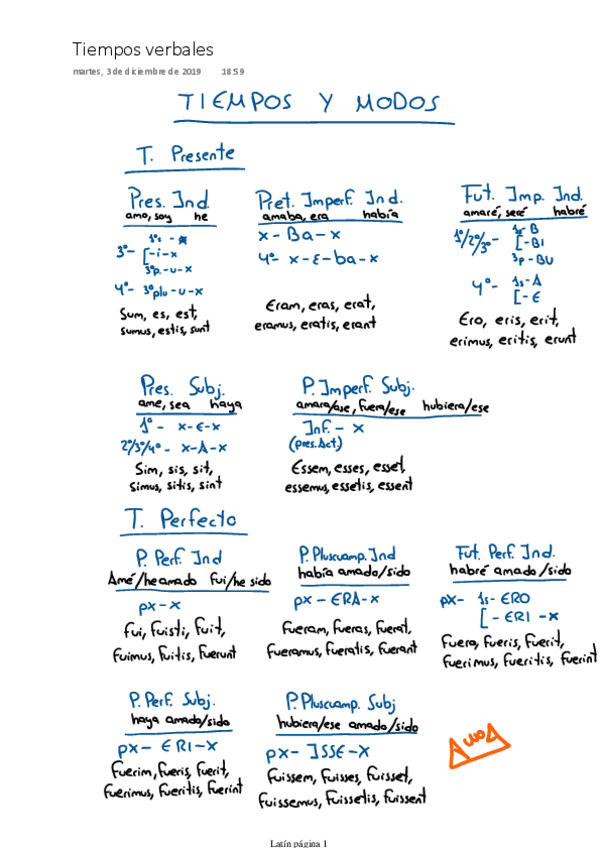 Tiempos verbales
martes, 3 de diciembre de 2019 18:59
TIEMPOS Y MODOS
T. Presente
Pres. Ind.
amo, soy he
1ªs - x
3º- [-i-x
3ªp.-u-x
4º- 3ºplu-u-x
Sum, es, est,
sumus, estis, sunt
Pret. Imperf. Ind.
amaba, era había
x - Ba - x
4º- x-E-ba-x
Eram, eras, erat,
eramus, eratis, erant
Fut. Imp. Ind.
amaré, seré habré
1s-B
1º/2º/3º- [-BI
3p-BU
4º- 1s-A
[-E
Ero, eris, erit,
erimus, eritis, erunt
Pres. Subj.
ame, sea haya
1º- x-E-x
2º/3º/4º- x-A-x
Sim, sis, sit,
Simus, sitis, sint
P. Imperf. Subj.
amara/ase, fuera/ese hubiera/ese
Inf. - x
(pres.Act.)
Essem, esses, esset,
essemus, essetis, essent
T. Perfecto
P. Perf. Ind
Amé/he amado fui/he sido
px-x
fui, fuisti, fuit,
fuimus, fuitis, fuerunt
P. Pluscuamp. Ind
había amado/sido
px-ERA-x
Fueram, fueras, fuerat,
fueramus, fueratis, fuerant
Fut. Perf. Ind.
habré amado/sido
px- 1s-ERO
[-ERI-x
Fuero, fueris, fuerit,
fuerimus, fueritis, fuerint
P. Perf. Subj.
haya amado/sido
px-ERI-x
Fuerim, fueris, fuerit,
fuerimus, fueritis, fuerint
P. Pluscuamp. Subj
hubiera/ese amado/sido
px-ISSE-x
Fuissem, fuisses, fuisset,
fuissemus, fuissetis, fuissent
Latín página 1